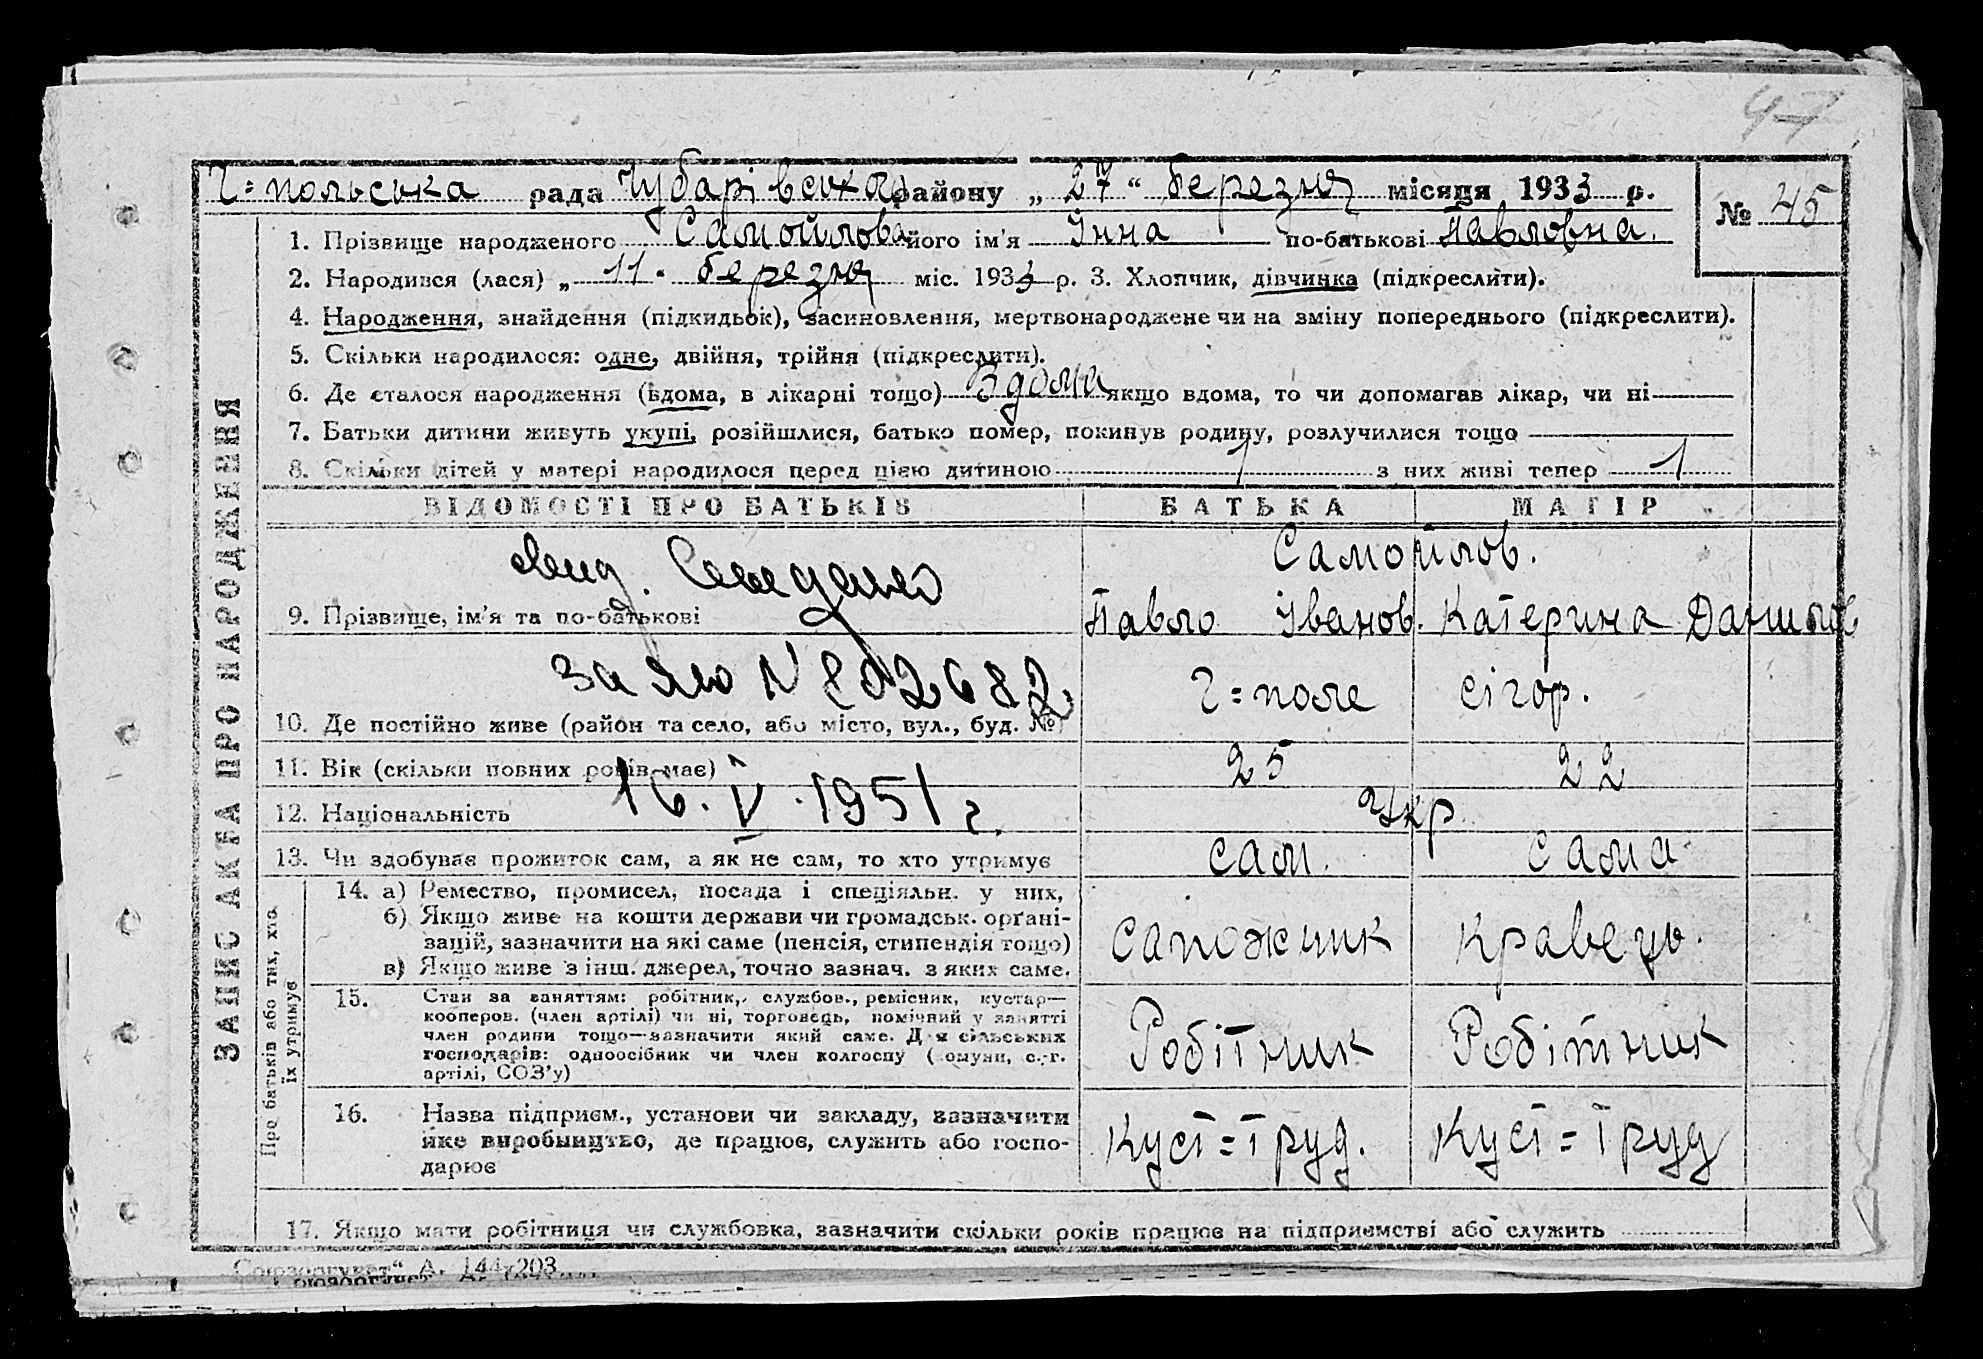 47
Г=польська рада Чубарівського району „ 27 “ березня місяця 1933 р.
№ 45
1. Прізвище народженого Самойлова його ім'я Інна по-батькові Павловна.
2. Народився (лася) „ 11 " березня міс. 1933 р. 3. Хлопчик, дівчинка (підкреслити).
4. Народження, знайдення (підкидьок), засиновлення, мертвонароджене чи на зміну попереднього (підкреслити).
5. Скільки народилося: одне, двійня, трійня (підкреслити).
6. Де сталося народження (вдома, в лікарні тощо) Вдома якщо вдома, то чи допомагав лікар, чи ні
7. Батьки дитини живуть укупі, розійшлися, батько помер, покинув родину, розлучилися тощо
8. Скільки дітей у матері народилося перед цією дитиною 1 з них живі тепер 1
ЗАПИС АКТА ПРО НАРОДЖЕННЯ
ВІДОМОСТІ ПРО БАТЬКІВ БАТЬКА МАТІР
Самойлов.
9. Прізвище, ім'я та по-батькові Павло Іванов. Катерина Данилов
№ 802682
10. Де постійно живе (район та село, або місто, вул., буд. №) Г=поле
11. Вік (скільки повних років має) 25 22
16. V. 1951 г.
12. Національність Укр
13. Чи здобуває прожиток сам, а як не сам, то хто утримує сам. сама
Про батьків або тих, хто
їх утримує
14. а) Ремество, промисел, посада і спеціяльн. у них,
б) Якщо живе на кошти держави чи громадськ. органі-
зацій, зазначити на які саме (пенсія, стипендія тощо) сапожник кравець.
в) Якщо живе з інш. джерел, точно зазнач. з яких саме.
15. Стан за заняттям: робітник, службов., ремісник, кустар—
кооперов. (член артілі) чи ні, торговець, помічний у занятті
член родини тощо—зазначити який саме. Для сільських
господарів: одноосібник чи член колгоспу (комуни, с.-г.
артілі, СОЗ'у) Робітник Робітник
16. Назва підприєм., установи чи закладу, зазначити
яке виробництво, де працює, служить або госпо-
дарює Куст=труд. Куст=труд
17. Якщо мати робітниця чи службовка, зазначити скільки років працює на підприємстві або служить